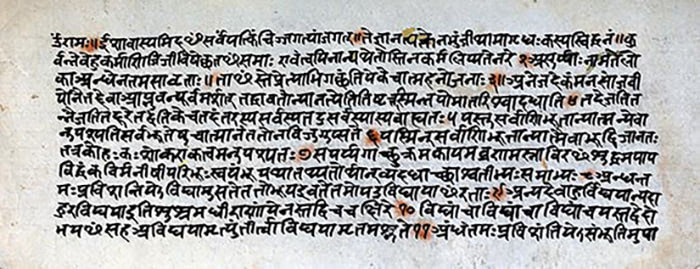 ॐरामः॥ईशावास्यमिदꣳसर्वंयत्किंचिज्जगत्यांजगत्॥तेनत्यक्तेनभुंजीथामागृधःकस्यस्विद्धनं॥कु
र्वन्नेवेहकर्माणिजिजीविषेच्छतꣳसमाः एवंत्वयिनान्यथेतोस्तिनकर्मलिप्यतेनरे २असूर्यानामतेलो
काअन्धेनतमसावृताः॥ताꣳस्तेप्रेत्याभिगच्छंतियेकेचात्महनोजनाः ३॥अनेजदेकंमनसोजवी
योनैनद्देवाआप्नुवन्पूर्वमर्शत् तद्धावतोन्यानत्येतितिष्ठत्तस्मिन्नपोमातरिश्वादधाति ४ तदेजतित
न्नैजतितद्दूरेतद्वंतिके तदंतरस्यसर्वस्यतदुसर्वस्यास्यबाह्यतः ५ यस्तुसर्वाणिभूतान्यात्मन्येवा
नुपश्यतिसर्वभूतेषुचात्मानंततोनविजुगुप्सते ६ यस्मिन्सर्वाणिभूतान्यात्मैवाभूद्विजानतः
तत्रकोमोहःकःशोकएकत्वमनुपश्यतः ७ सपर्यगाच्छुक्रमकायमव्रणमस्नाविरꣳशुद्धमपाप
विद्धंकविर्मनीषीपरिभूःस्वयंभूर्याथातथ्यतोर्थान्व्यदधाच्छाश्वतीभ्यःसमाभ्यः ८ अन्धंत
मःप्रविशंतियेविद्यामुपासतेततोभूयइवतेतमोयउविद्यायाꣳरताः ९ अन्यदेवाहुर्विद्ययान्यदा
हुरविद्ययाइतिशुश्रुमधीराणांयेनस्तद्विचचक्षिरे १० विद्यांचाविद्यांचाविद्यांचयस्तद्वेदो
भयꣳसहअविद्ययामृत्युंतीर्त्वाविद्ययामृतमश्नुते ११ अंधंतमःप्रविशंतियेसंभूतिमुपा